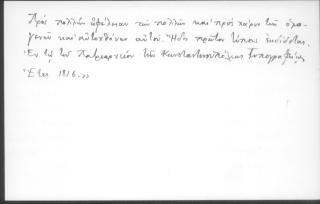 Πρὸς πολλὴν ὠφέλειαν τῶν πολλῶν καὶ πρὸς χάριν τῶν ὁμο-
γενῶν καὶ αὐτοχθόνων αὐτοῦ. Ἤδη πρῶτον τύποις ἐκδίδοται.
Ἐν τῷ τοῦ Πατριαρχείου τῆς Κωνσταντινουπόλεως Τυπογραφείῳ,
Ἔτει 1816.»